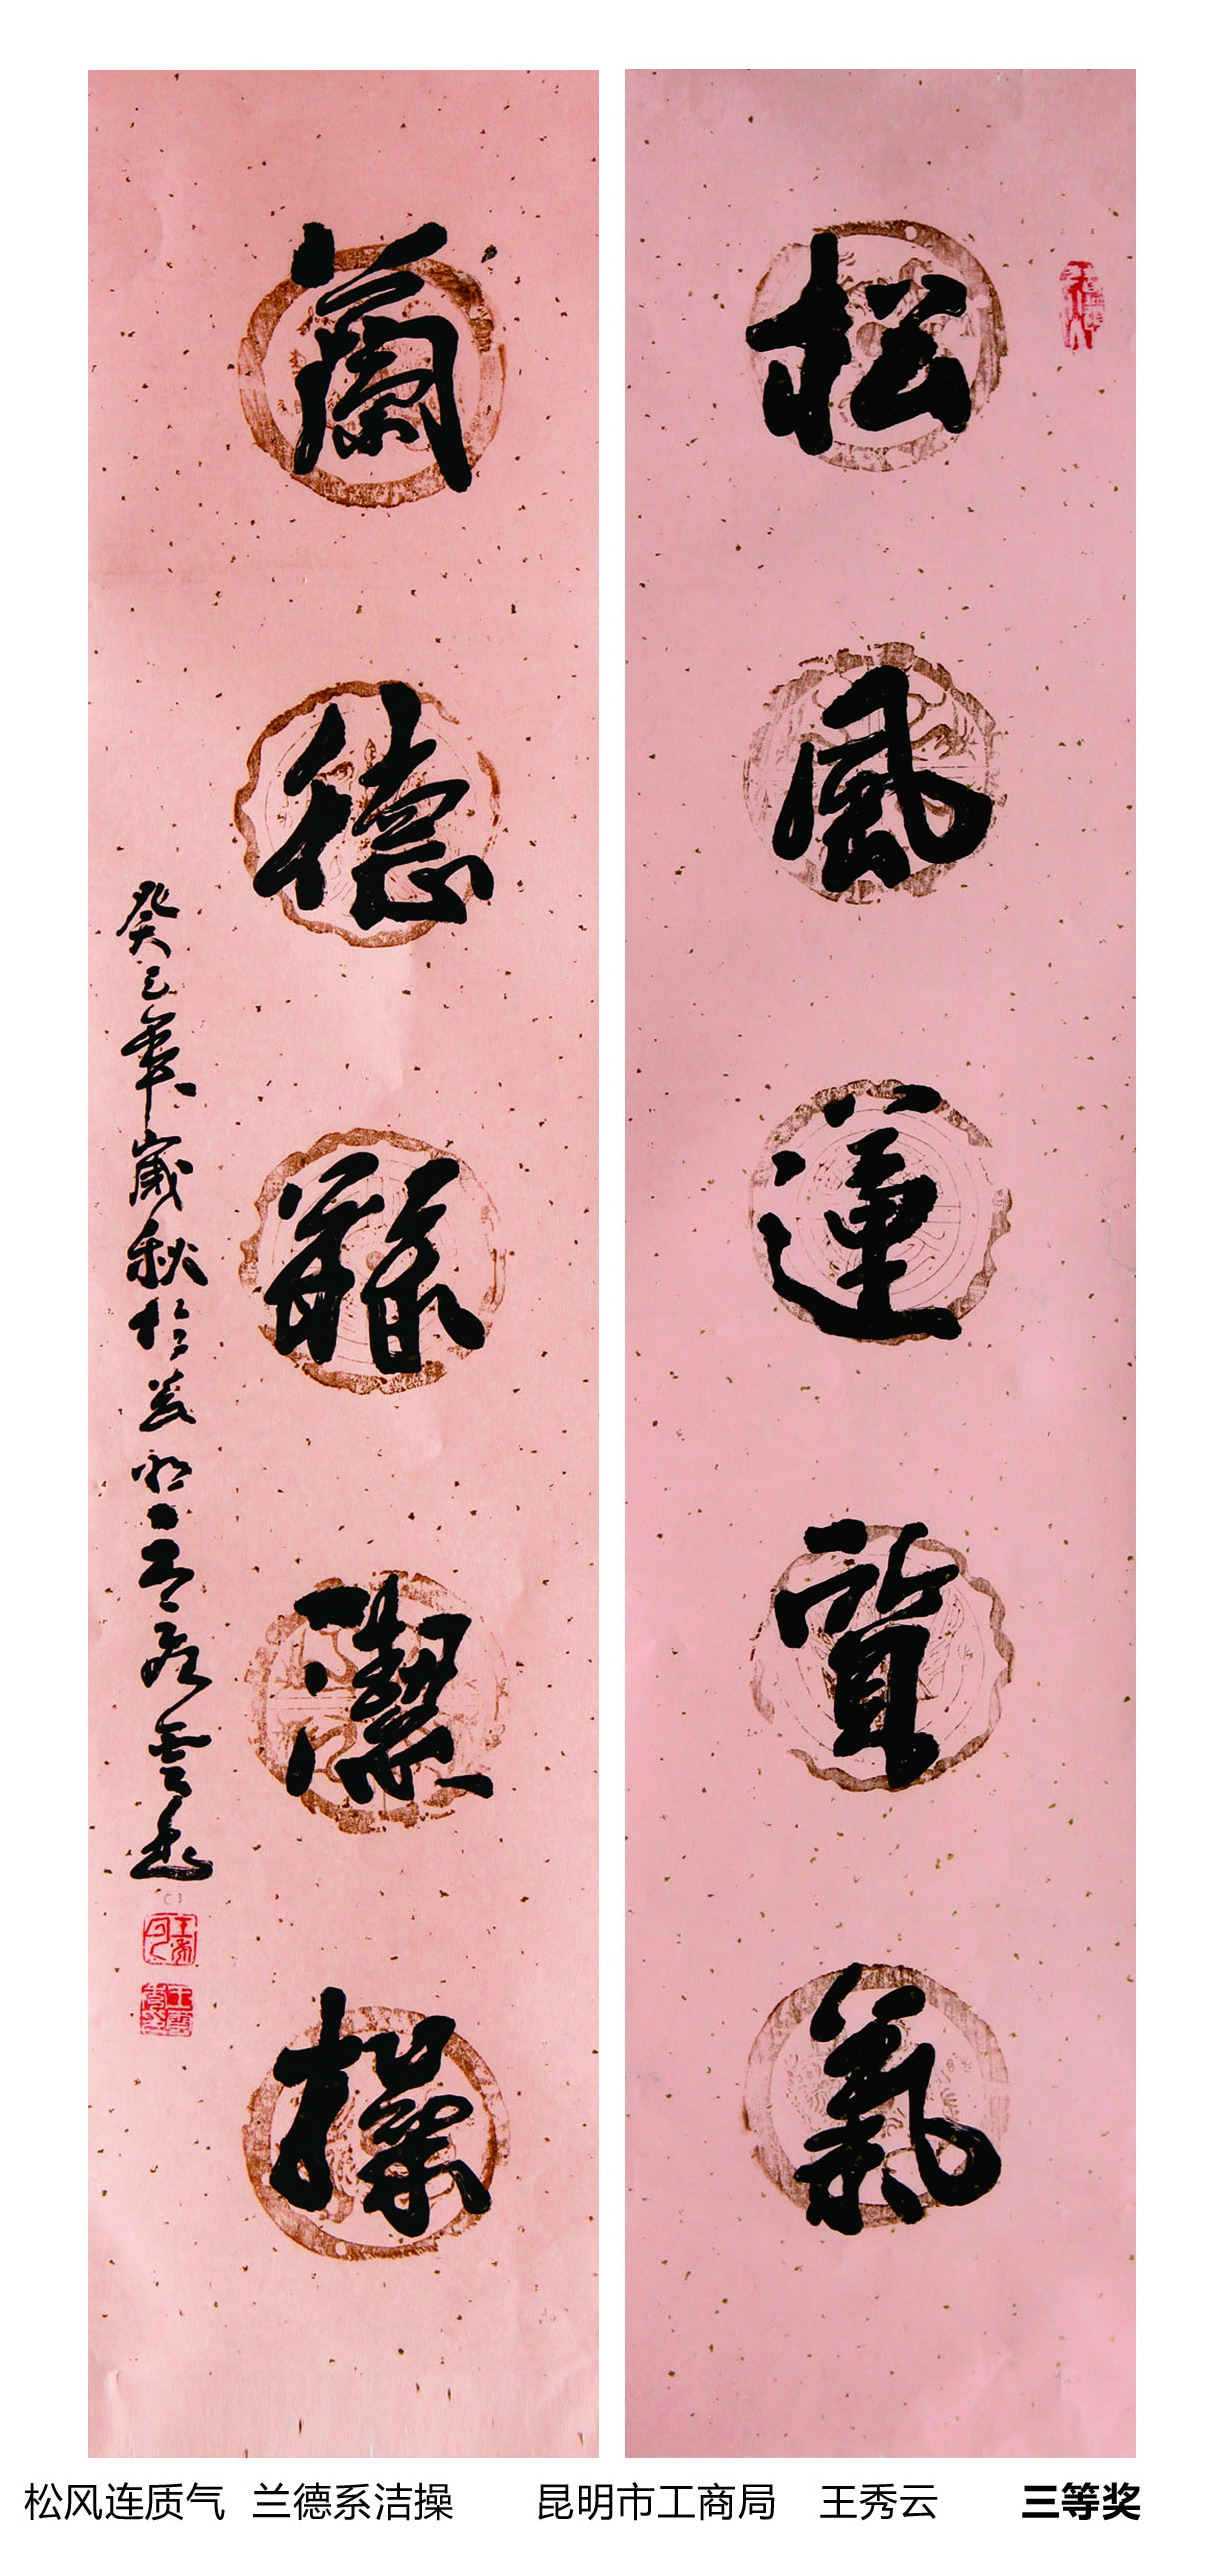 松風蓮質氣
蘭德潔操
癸巳年歲秋於昆明王秀雲書
松风连质气 兰德系洁操 昆明市工商局 王秀云 三等奖